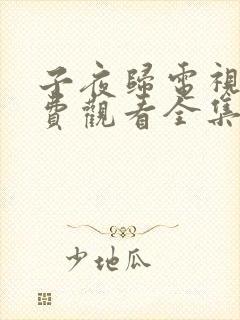 子夜歸電視
費觀看全集
少地瓜